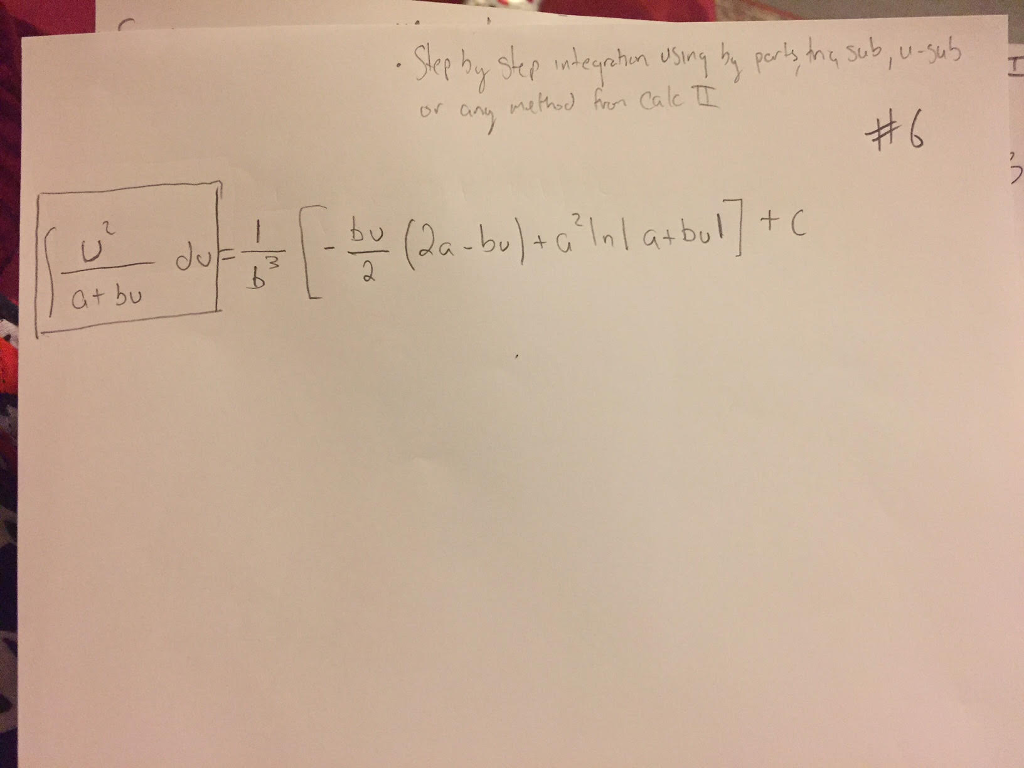 • Step by step integration using by parts, trig sub, u-sub
or any method from Calc II
#6
∫ u² / (a + bu) du = 1/b³ [ - bu/2 (2a - bu) + a² ln | a + bu | ] + C